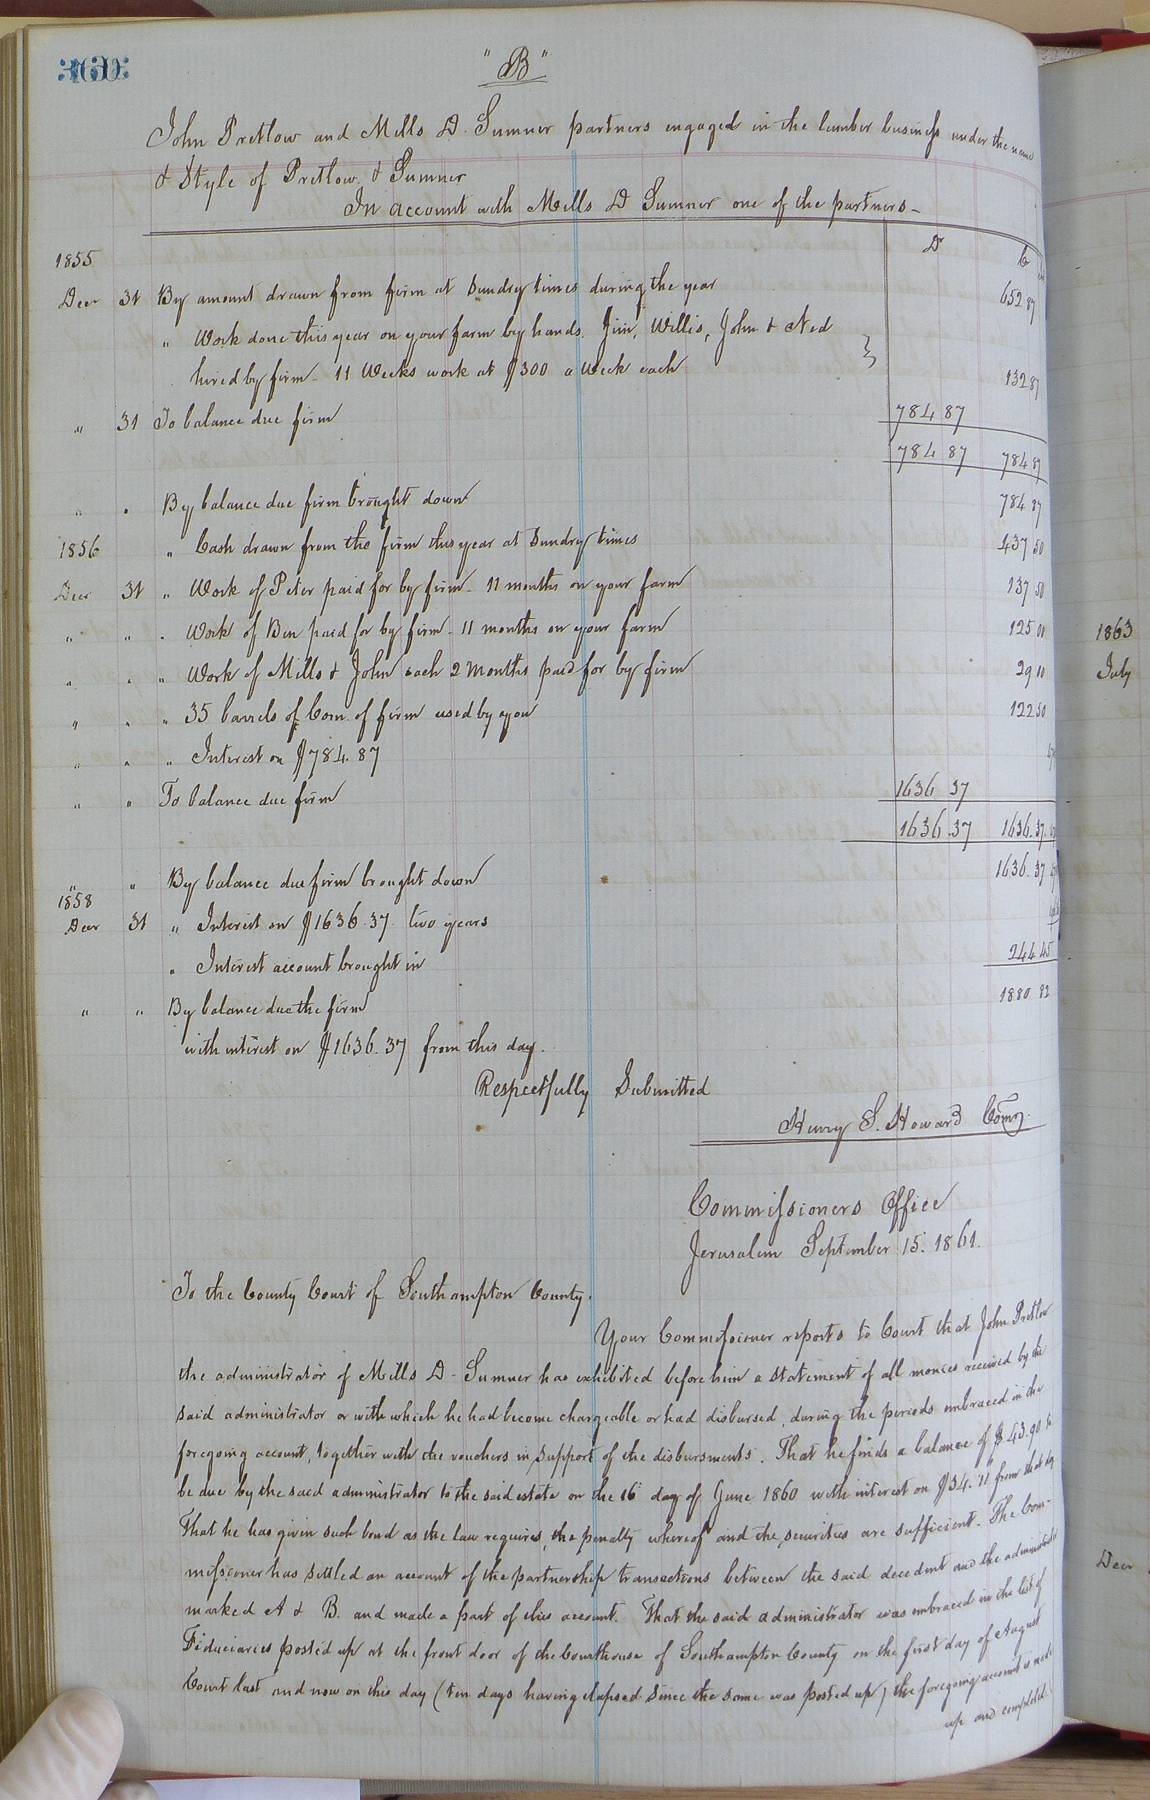 360
" B "
John Pretlow and Mills D. Sumner partners engaged in the lumber business under the name
& Style of Pretlow & Sumner
In account with Mills D Sumner one of the partners -
Dr Cr
1855
Decr 31 By amount drawn from firm at Sundry times during the year 652 87
" Work done this year on your farm by hands. Jim, Willis, John & Ned
hired by firm - 11 Weeks work at $3 00 a Week each 132 87
" 31 To balance due firm 784 87
784 87 784 87
" " By balance due firm brought down 784 87
1856 " Cash drawn from the firm this year at Sundry times 437 50
Decr 31 " Work of Peter paid for by firm - 11 months on your farm 137 50
" " " Work of Ben paid for by firm - 11 months on your farm 125 00
" " " Work of Mills & John each 2 months paid for by firm 29 00
" " " 35 barrels of Corn of firm used by you 122 50
" " " Interest on $784.87
" " To balance due firm 1636 37
1636.37 1636.37
" " By balance due firm brought down 1636.37
1858
Decr 31 " Interest on $1636.37 two years
" Interest account brought in 244 45
" " By balance due the firm 1880 82
with interest on $1636.37 from this day.
Respectfully Submitted
Henry S. Howard Comr.
Commissioners Office
Jerusalem September 15. 1861.
To the County Court of Southampton County.
Your Commissioner reports to Court that John Pretlow
the administrator of Mills D. Sumner has exhibited before him a statement of all monies received by the
said administrator or with which he had become chargeable or had disbursed, during the periods embraced in the
foregoing account, together with the vouchers in support of the disbursments. That he finds a balance of $43.90 to
be due by the said administrator to the said estate on the 16 day of June 1860 with interest on $34.11 from that day
That he has given such bond as the law requires, the penalty whereof and the securities are sufficient. The Com-
missioner has settled an account of the partnership transactions between the said decedent and the administrator
marked A & B. and made a part of this account. That the said administrator was embraced in the list of
Fiduciaries posted up at the front door of the Courthouse of Southampton County on the first day of August
Court last and now on this day (ten days having elapsed since the same was posted up) the foregoing account is made
up and completed.
1863
July
Decr